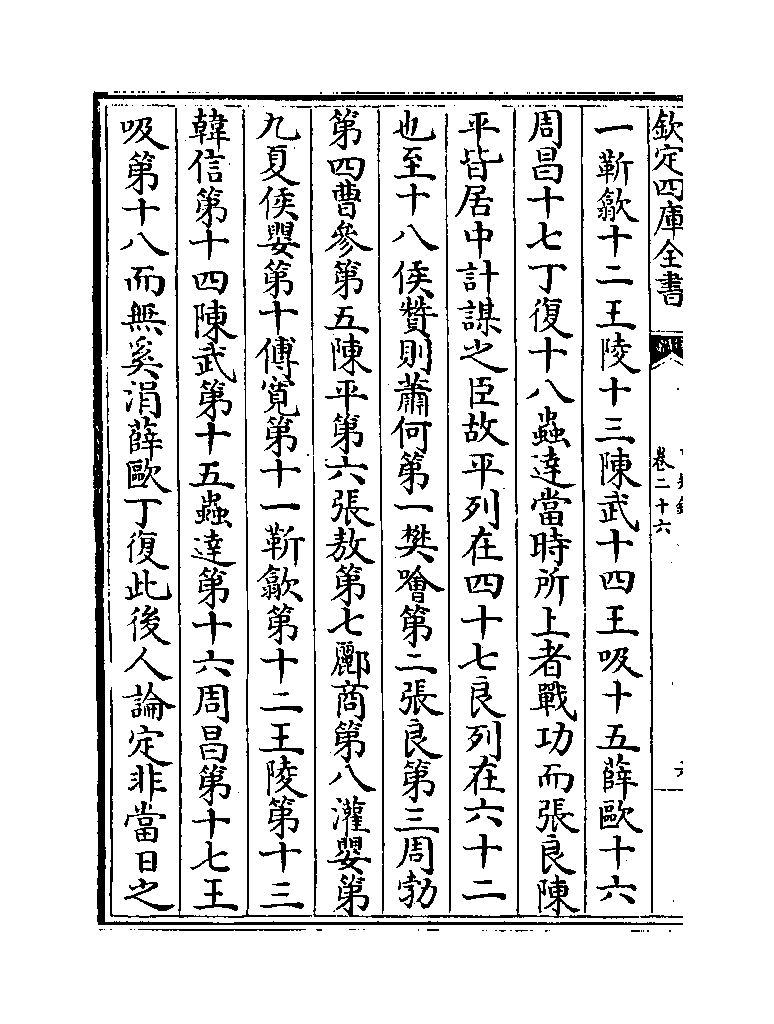 欽定四庫全書
卷二十六
一靳歙十二王陵十三陳武十四王吸十五薛歐十六
周昌十七丁復十八蟲逹當時所上者戰功而張良陳
平皆居中計謀之臣故平列在四十七良列在六十二
也至十八侯贊則蕭何第一樊噲第二張良第三周勃
第四曹參第五陳平第六張敖第七酈商第八灌嬰第
九夏侯嬰第十傅寛第十一靳歙第十二王陵第十三
韓信第十四陳武第十五蟲逹第十六周昌第十七王
吸第十八而無奚涓薛歐丁復此後人論定非當日之